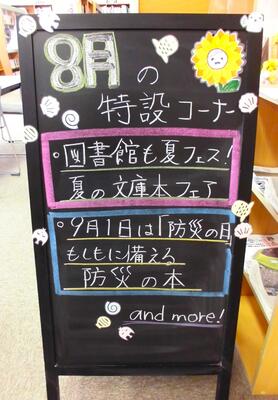 8月の
特設コーナー
。図書館も夏フェス!
夏の文庫本フェア
。9月1日は「防災の日
もしもに備える
防災の本
and more!